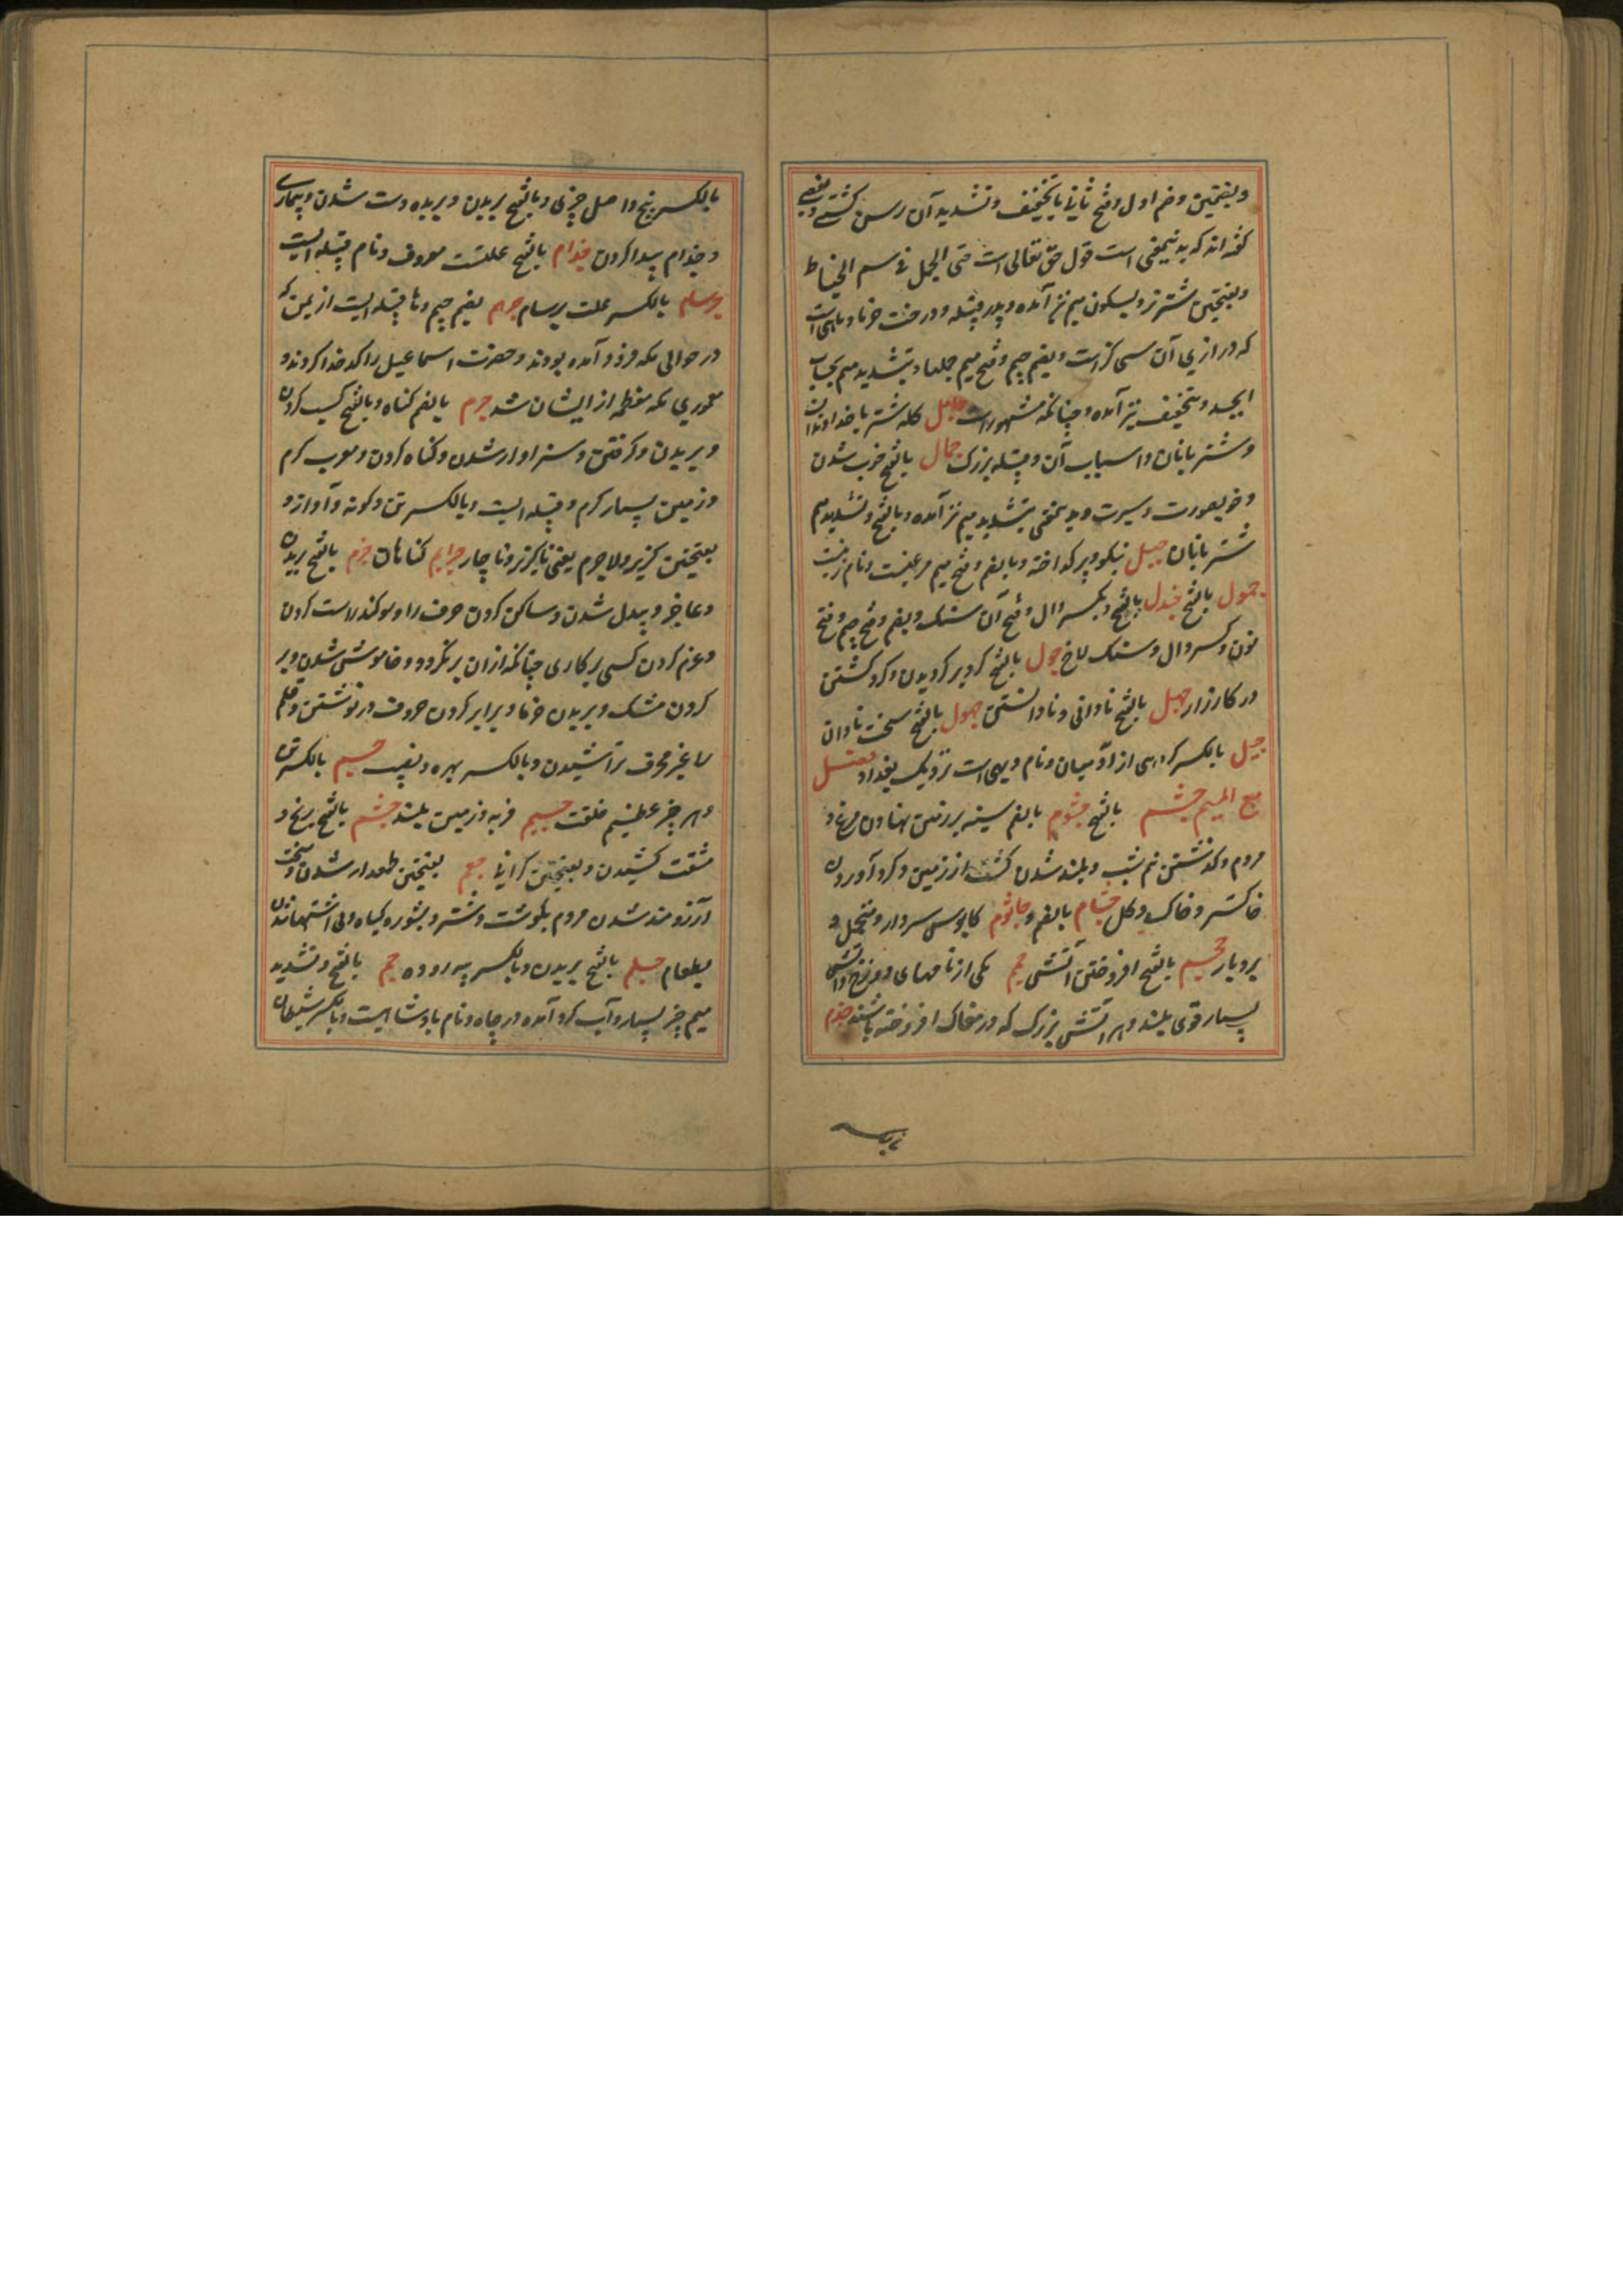 وبضمتین وضم اول وفتح ثانی با تخفیف وتشدید آن رسن کشتی وبعضی
گفته اند که بدینمعنی است قول حق تعالی است حتی الجمل فی سم الخیاط
وبفتحتین شتر نر وبسکون میم نیز آمده وپدر قبیله ودرخت خرما وماهی است
که درازی آن سی گز است وبضم جیم وفتح میم جملها وبتشدید میم حساب
ابجد وبتخفیف نیز آمده وچنانکه مشهور است جامل گله شتر با خداوندان
وشتربانان واسباب آن وقبیله بزرگ جمال بالفتح خوب شدن
وخوبصورت وسیرت وبدینمعنی بتشدید میم نیز آمده وبالفتح وتشدید میم
شتربانان جمیل نیکو وپیه گداخته وبالضم وفتح میم مرغیست ونام زنیست
جمول بالفتح جندل بالفتح وبکسر دال وفتح آن سنگ وبضم وفتح جیم وفتح
نون وکسر دال وسنگ لاخ جول بالفتح گرد بر گردیدن وگرد گشتن
در کارزار جهل بالفتح نادانی ونادانستن جهول بالفتح سخت نادان
جیل بالکسر گروهی از آدمیان ونام دیهی است نزدیک بغداد فصل
مع المیم جشم بالفتح جثوم بالضم سینه بر زمین نهادن مرغ و
مردم وگذشتن نیم شب وبلند شدن کشت از زمین وگرد آوردن
خاکستر وخاک وگل جثام بالضم وجاثوم کابوس سردار ومتحمل و
بردبار جحیم بالفتح افروختن آتش جحیم یکی از نامهای دوزخ وآتش
بسیار قوی بلند وهر آتش بزرگ که در مغاک افروخته باشند جذم
بالکسر بیخ واصل چیزی وبالفتح بریدن وبریده دست شدن وبیماری
وجذام پیدا کردن جذام بالفتح علتیست معروف ونام قبیله ایست
جرسام بالکسر علت برسام جرهم بضم جیم وها قبیله ایست از یمن که
در حوالی مکه فرود آمده بودند وحضرت اسماعیل را کدخدا کردند و
معموری مکه معظمه از ایشان شد جرم بالضم گناه وبالفتح کسب کردن
وبریدن وگرفتن وسزاوار شدن وگناه کردن ومعرب گرم
وزمین بسیار گرم وقبیله ایست وبالکسر تن وگونه وآواز و
بفتحتین گزیر ولاجرم یعنی ناگزیر وناچار جرایم گناهان جزم بالفتح بریدن
وعاجز وبیدل شدن وساکن کردن حرف را وسوکند راست کردن
وعزم کردن کسی بر کاری چنانکه از آن برنگردد وخاموش شدن وپر
کردن مشک وبریدن خرما وبرابر کردن حروف در نوشتن وقلم
را غیر محرف تراشیدن وبالکسر بهره ونصیب جسم بالکسر تن
وهر چیز عظیم خلقت جسیم فربه وزمین بلند جشم بالفتح رنج و
مشقت کشیدن وبفتحتین گرانی جعم بفتحتین طمعدار شدن وسخت
آرزومند شدن مردم بگوشت وشتر وبشوره گیاه وبی اشتها شدن
بطعام جلم بالفتح بریدن وبالکسر پیه روده جم بالفتح وتشدید
میم چیز بسیار وآب گرد آمده در چاه ونام پادشاهیست وبالکسر شیطان